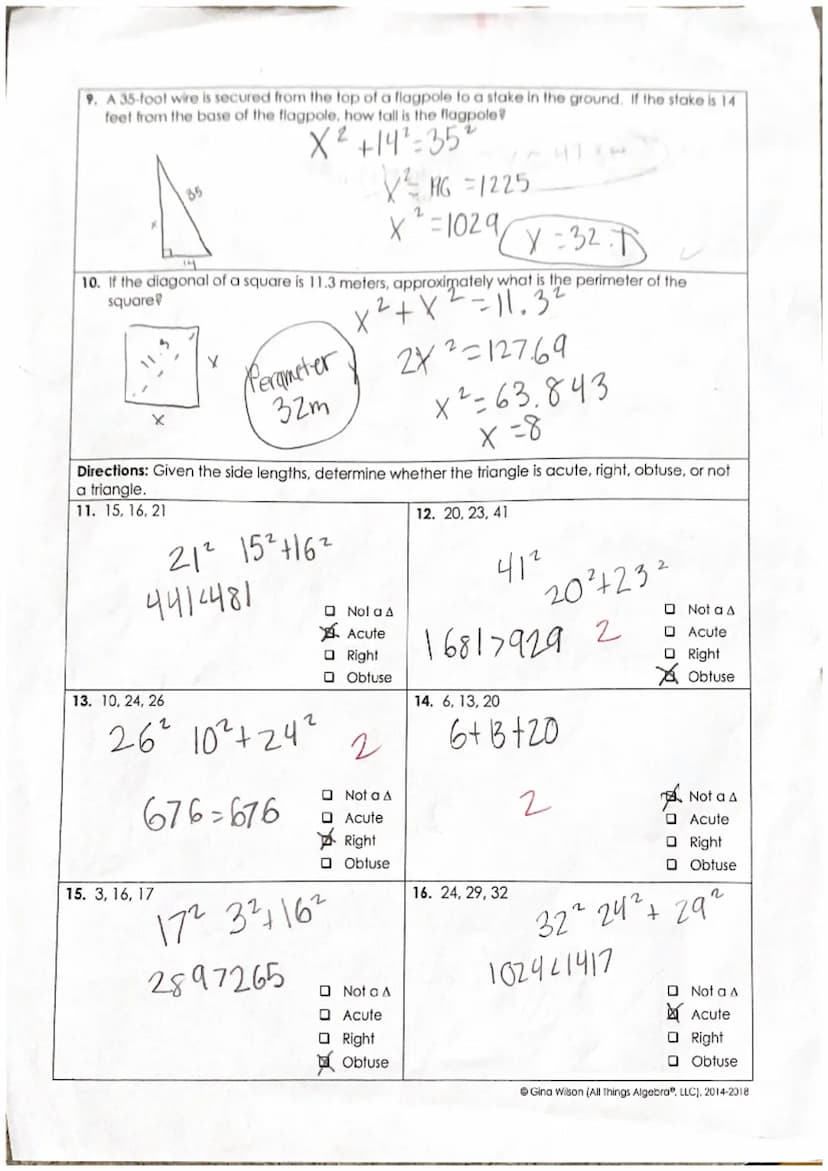 9. A 35-foot wire is secured from the top of a flagpole to a stake in the ground. If the stake is 14
feet from the base of the flagpole, how tall is the flagpole?
x² + 14² = 35²
x² = 196 = 1225
x² = 1029
x = 32.1
35
x
14
10. If the diagonal of a square is 11.3 meters, approximately what is the perimeter of the
square?
x² + x² = 11.3²
2x² = 127.69
x² = 63.843
x = 8
11.3
x
x
Perameter
32m
Directions: Given the side lengths, determine whether the triangle is acute, right, obtuse, or not
a triangle.
11. 15, 16, 21
21² 15² + 16²
441 < 481
Not a Δ
Acute
Right
Obtuse
12. 20, 23, 41
41²
20² + 23²
1681 > 929
2
Not a Δ
Acute
Right
Obtuse
13. 10, 24, 26
26² 10² + 24²
2
676 = 676
Not a Δ
Acute
Right
Obtuse
14. 6, 13, 20
6 + 13 + 20
2
Not a Δ
Acute
Right
Obtuse
15. 3, 16, 17
17² 3² + 16²
289 > 265
Not a Δ
Acute
Right
Obtuse
16. 24, 29, 32
32² 24² + 29²
1024 < 1417
Not a Δ
Acute
Right
Obtuse
© Gina Wilson (All Things Algebra®, LLC), 2014-2018